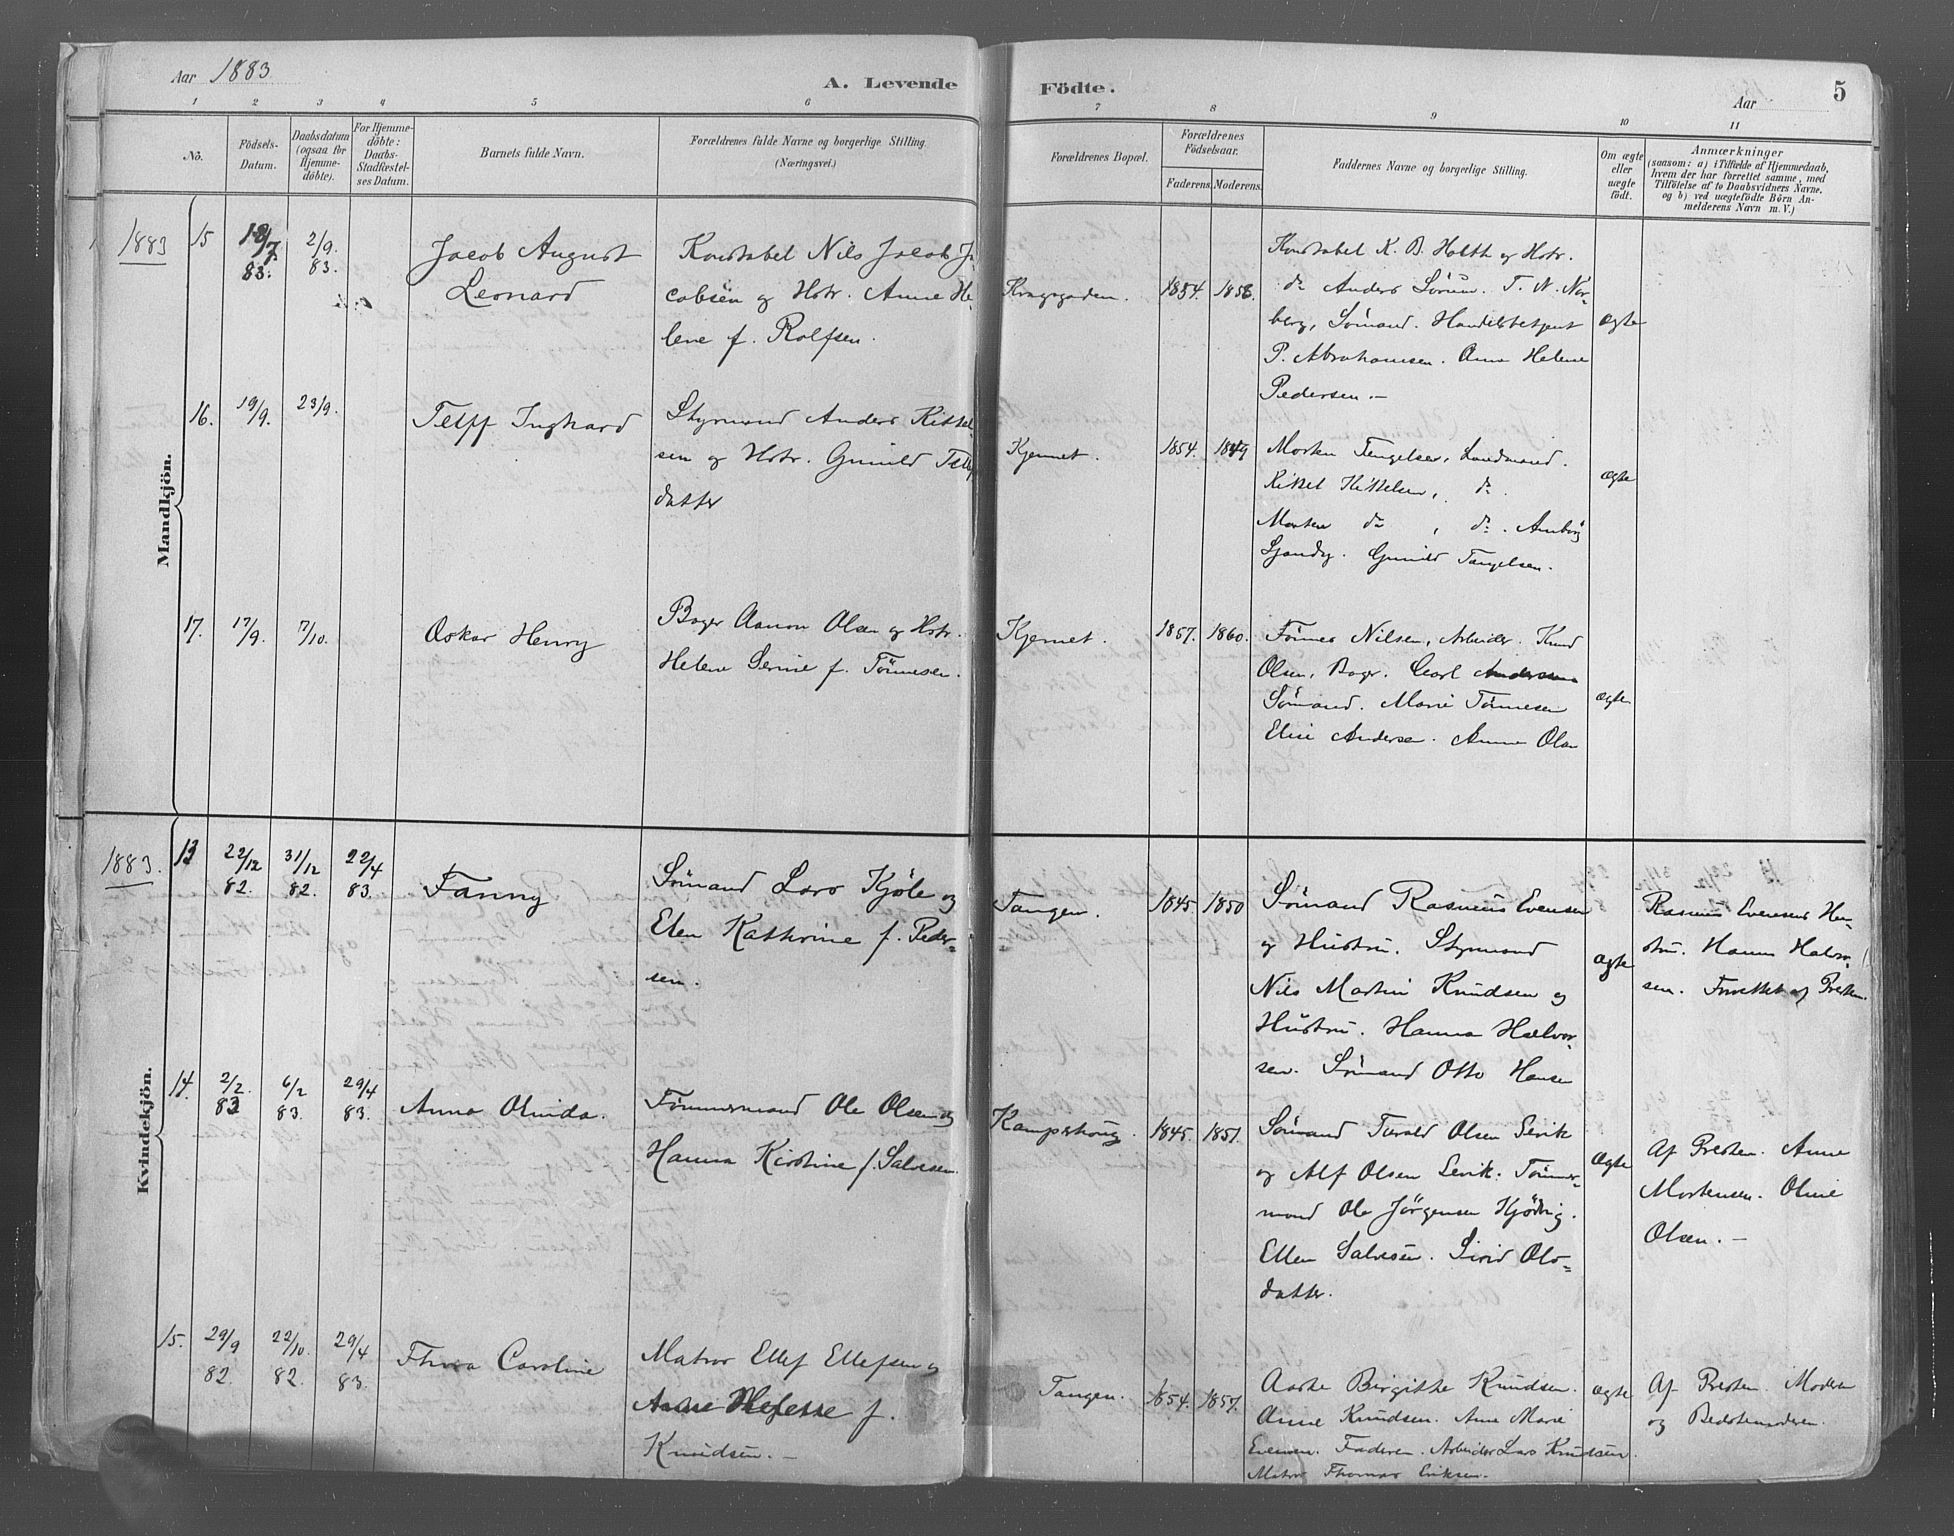 Aar 1883
A. Levende Födte.
Aar
5
1 2 3 4 5 6 7 8 9 10 11
No.
Födsels-
Datum.
Daabsdatum
(ogsaa for
Hjemme-
döbte).
For Hjemme-
döbte:
Daabs-
Stadfestel-
ses Datum.
Barnets fulde Navn.
Forældrenes fulde Navne og borgerlige Stilling.
(Næringsvei.)
Forældrenes Bopæl.
Forældrenes
Födselsaar.
Faderens. Moderens.
Faddernes Navne og borgerlige Stilling.
Om ægte
eller
uægte
födt.
Anmærkninger
(saasom: a) i Tilfælde af Hjemmedaab,
hvem der har forrettet samme, med
Tilföielse af to Daabsvidners Navne,
og b) ved uægtefödte Börn An-
melderens Navn m. V.)
Mandkjön.
1883
15
18/7
83.
2/9.
83.
Jacob August
Leonard
Konstabel Nils Jacob Ja-
cobsen og Hstr. Anne He-
lene f. Rolfsen.
Kragsgaden.
1854. 1856.
Konstabel K. B. Holth og Hstr.
do Anders Sørum. T. N. Nor-
berg, Sømand. Handelsbetjent
P. Abrahamsen. Anna Helene
Pedersen.—
Ægte
16.
19/9.
23/9.
Tellef Inghard
Styrmand Anders Kittel-
sen og Hstr. Gunild Tellefs-
datter
Kjennet.
1854. 1849
Morten Tengelsen, Landmand.
Kittel Kittelsen, do.
Morten do, do. Anborg
Gunild Tangelsen.
Ægte
17.
17/9.
7/10.
Oskar Henry
Bager Aanon Olsen og Hstr.
Helene Serine f. Tönnesen.
Kjennet.
1857. 1860.
Tönnes Nilsen, Arbeider. Knud
Olsen, Bager. Carl Andersen
Sömand. Marie Tönnesen
Elise Andersen. Anne Olsen
Ægte
Kvindekjön.
1883.
13
22/12
82.
31/12
82.
22/4
83.
Fanny
Sömand Lars Kjöle og
Elen Kathrine f. Peder-
sen.
Tangen.
1845 1850
Sömand Rasmus Evensen
og Hustru. Styrmand
Nils Martin Knudsen og
Hustru. Hanna Halvor-
sen. Sömand Otto Hansen
Ægte
Rasmus Evensens Hu-
stru. Hanna Halvor-
sen. Forrettet af Presten.
14.
2/2.
83
6/2
83.
29/4
83.
Anna Olinda.
Tömmermand Ole Olsen og
Hanna Kirstine f. Salvesen.
Kampehoug.
1845. 1851.
Sömand Tarald Olsen Levik
og Alf Olsen Levik. Tömmer-
mand Ole Jörgensen Kjödvig.
Ellen Salvesen. Sirid Ols-
datter.
Ægte
Af Presten. Anne
Mortensen. Oline
Olsen.—
15.
29/9
82.
22/10.
82.
29/4
83.
Thora Caroline
Matros Ellef Ellefsen og
Anne f.
Knudsen.—
Tangen.
1854. 1857.
Aaste Birgithe Knudsen.
Anne Knudsen. Anne Marie
Evensen. Faderen. Arbeider Lars Knudsen.
Matros Thomas Eriksen.
Ægte
Af Presten. Moderen
og Bedstemoderen.